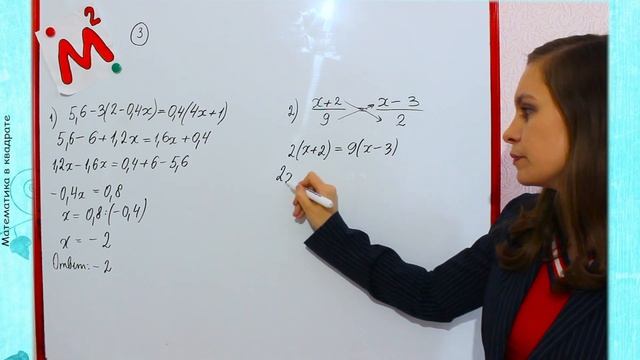 Математика в квадрате
М²
3
1) 5,6-3(2-0,4x)=0,4(4x+1)
5,6-6+1,2x=1,6x+0,4
1,2x-1,6x=0,4+6-5,6
-0,4x=0,8
x=0,8:(-0,4)
x=-2
Ответ:-2
2) x+2/9 = x-3/2
2(x+2)=9(x-3)
2x